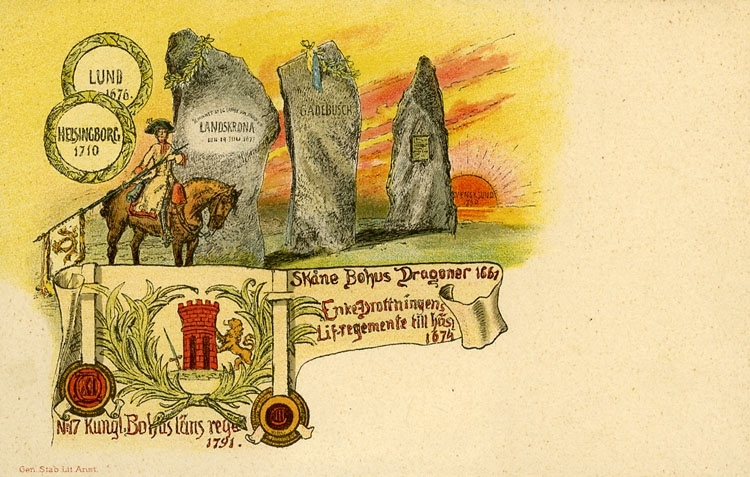 LUND
1676.
HELSINGBORG
1710
LANDSKRONA
DEN 14 JULI 1677
GADEBUSCH
SVENSKSUND
1790
Skåne Bohus Dragoner 1661
EnkeDrottningens
Lif-regemente till häst
1674
No 17 Kungl. Bohusläns rege
1791.
Gen. Stab. Lit. Anst.